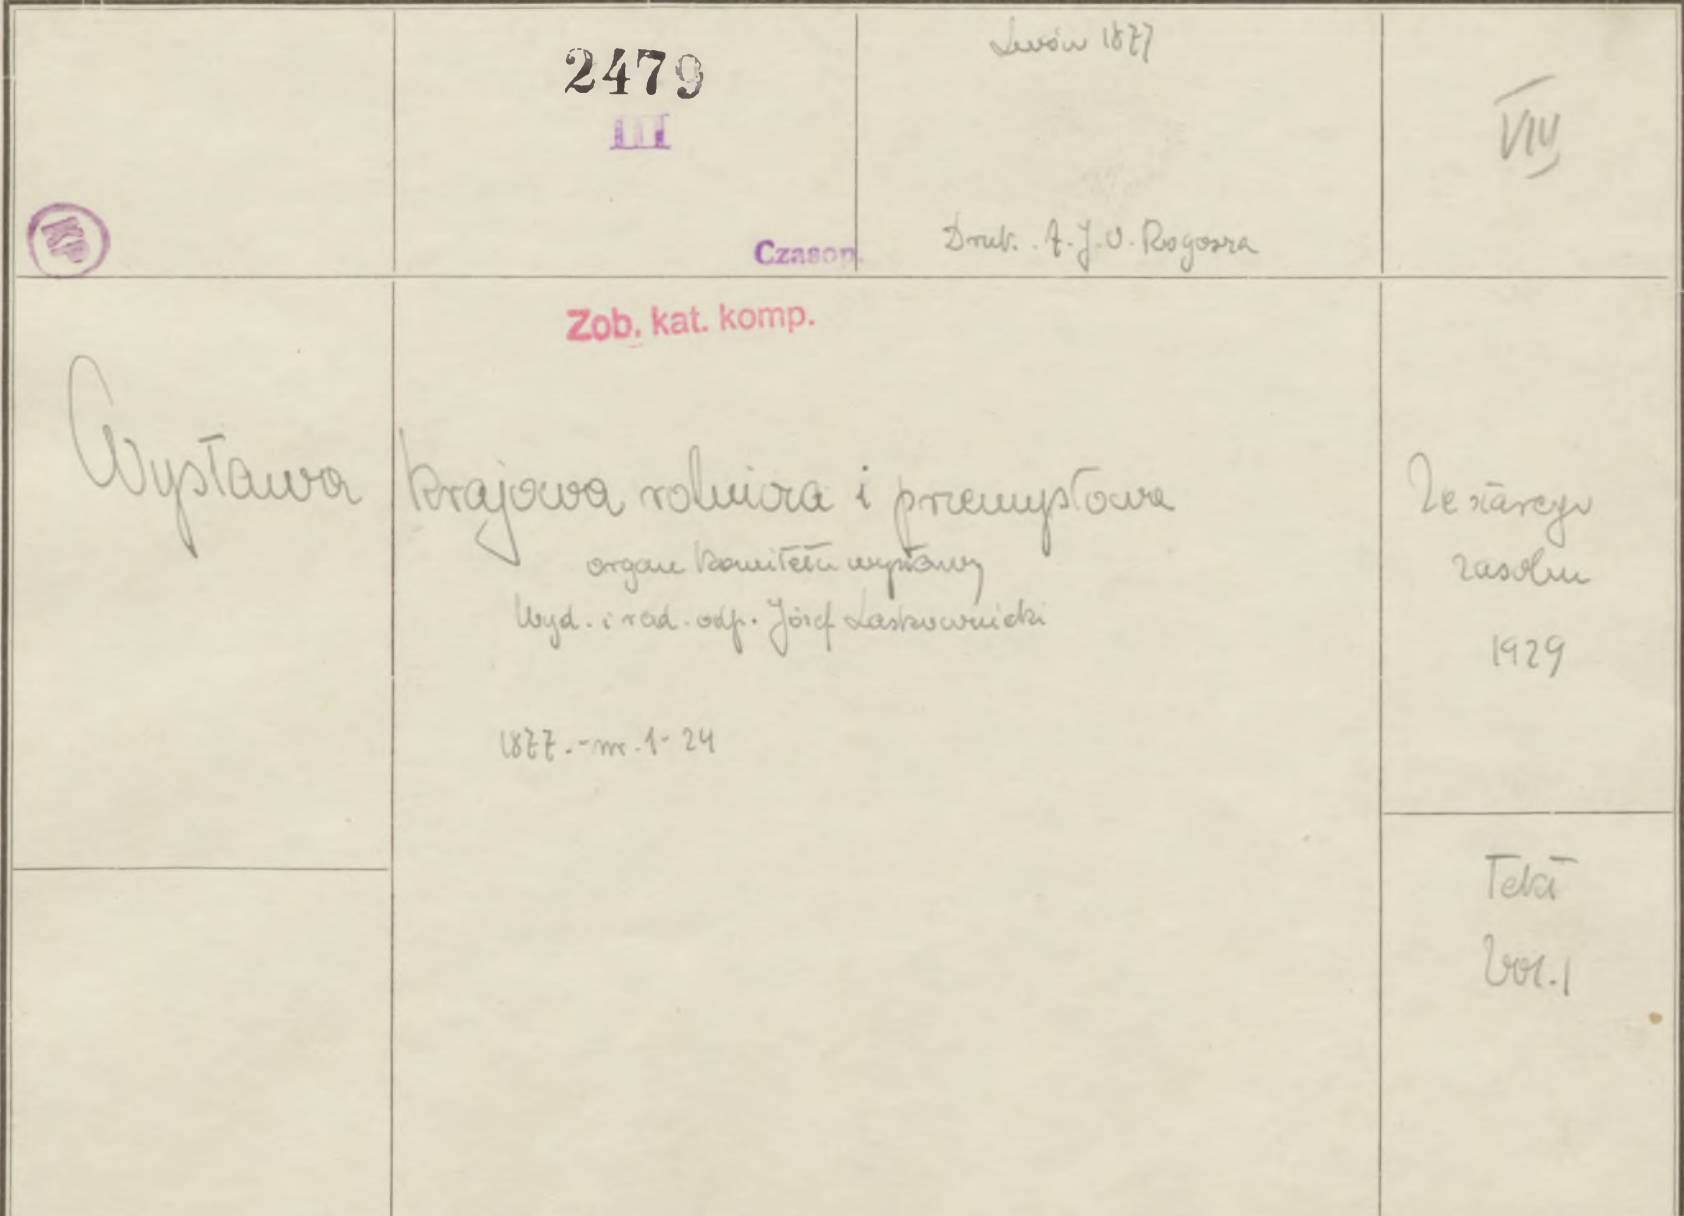 2479
III
Czasop.
Lwów 1877
Druk. A. J. O. Rogosza
VIII
Zob. kat. komp.
Wystawa krajowa rolnicza i przemysłowa
organ komitetu wystawy
Wyd. i red. odp. Józef Laskownicki
1877.-nr. 1-24
Ze starego
zasobu
1929
Tekt
Vol. 1